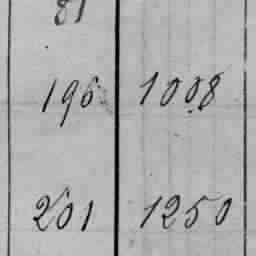 81
196 1008
201 1250